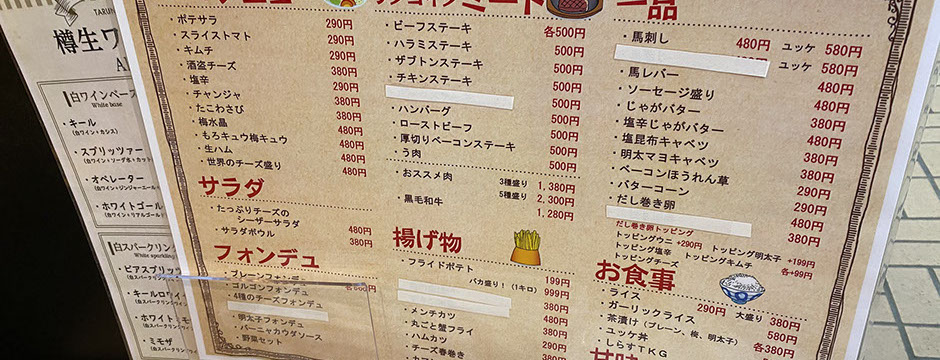 TARU
樽生ワ
白ワインベース
White base
・キール
(白ワイン・カシス)
・スプリッツァー
(白ワイン・ソーダ水・カット
・オペレーター
(白ワイン・ジンジャーエール・
・ホワイトゴール
(白ワイン・リアルゴール)
白スパークリン
White sparkling
・ビアスプリッ
(白スパークリンワ
・キールロワイ
(白スパークリンワ
・ホワイトミモ
(白スパークリンワ
・ミモザ
(白スパークリンワ
・ポテサラ 290円
・スライストマト 290円
・キムチ 290円
・酒盗チーズ 380円
・塩辛 290円
・チャンジャ 380円
・たこわさび 380円
・梅水晶 480円
・もろキュウ梅キュウ 480円
・生ハム 480円
・世界のチーズ盛り 480円
サラダ
・たっぷりチーズの
シーザーサラダ 480円
・サラダボウル 380円
フォンデュ
・プレーンフォンデュ
・ゴルゴンフォンデュ
・4種のチーズフォンデュ
・明太子フォンデュ
・バーニャカウダソース
・野菜セット
ミート
・ビーフステーキ 各500円
・ハラミステーキ 500円
・ザブトンステーキ 500円
・チキンステーキ 500円
500円
・ハンバーグ 500円
・ローストビーフ 500円
・厚切りベーコンステーキ 500円
・う肉 500円
・おススメ肉 3種盛り 1,380円
5種盛り 2,300円
・黒毛和牛 1,280円
揚げ物
・フライドポテト 199円
バカ盛り！(1キロ) 999円
380円
・メンチカツ
・丸ごと蟹フライ
・ハムカツ
・チーズ春巻き
一品
・馬刺し 480円 ユッケ 580円
ユッケ 580円
・馬レバー 580円
・ソーセージ盛り 480円
・じゃがバター 380円
・塩辛じゃがバター 480円
・塩昆布キャベツ 380円
・明太マヨキャベツ 380円
・ベーコンほうれん草 380円
・バターコーン 290円
・だし巻き卵 380円
480円
380円
だし巻き卵トッピング
トッピングウニ +290円 トッピング明太子 +199円
トッピング塩辛 トッピングキムチ 各+99円
トッピングチーズ
お食事
・ライス 290円 大盛り 380円
・ガーリックライス 580円
・茶漬け (プレーン、梅、明太子)
・ユッケ丼
・しらすTKG
甘味